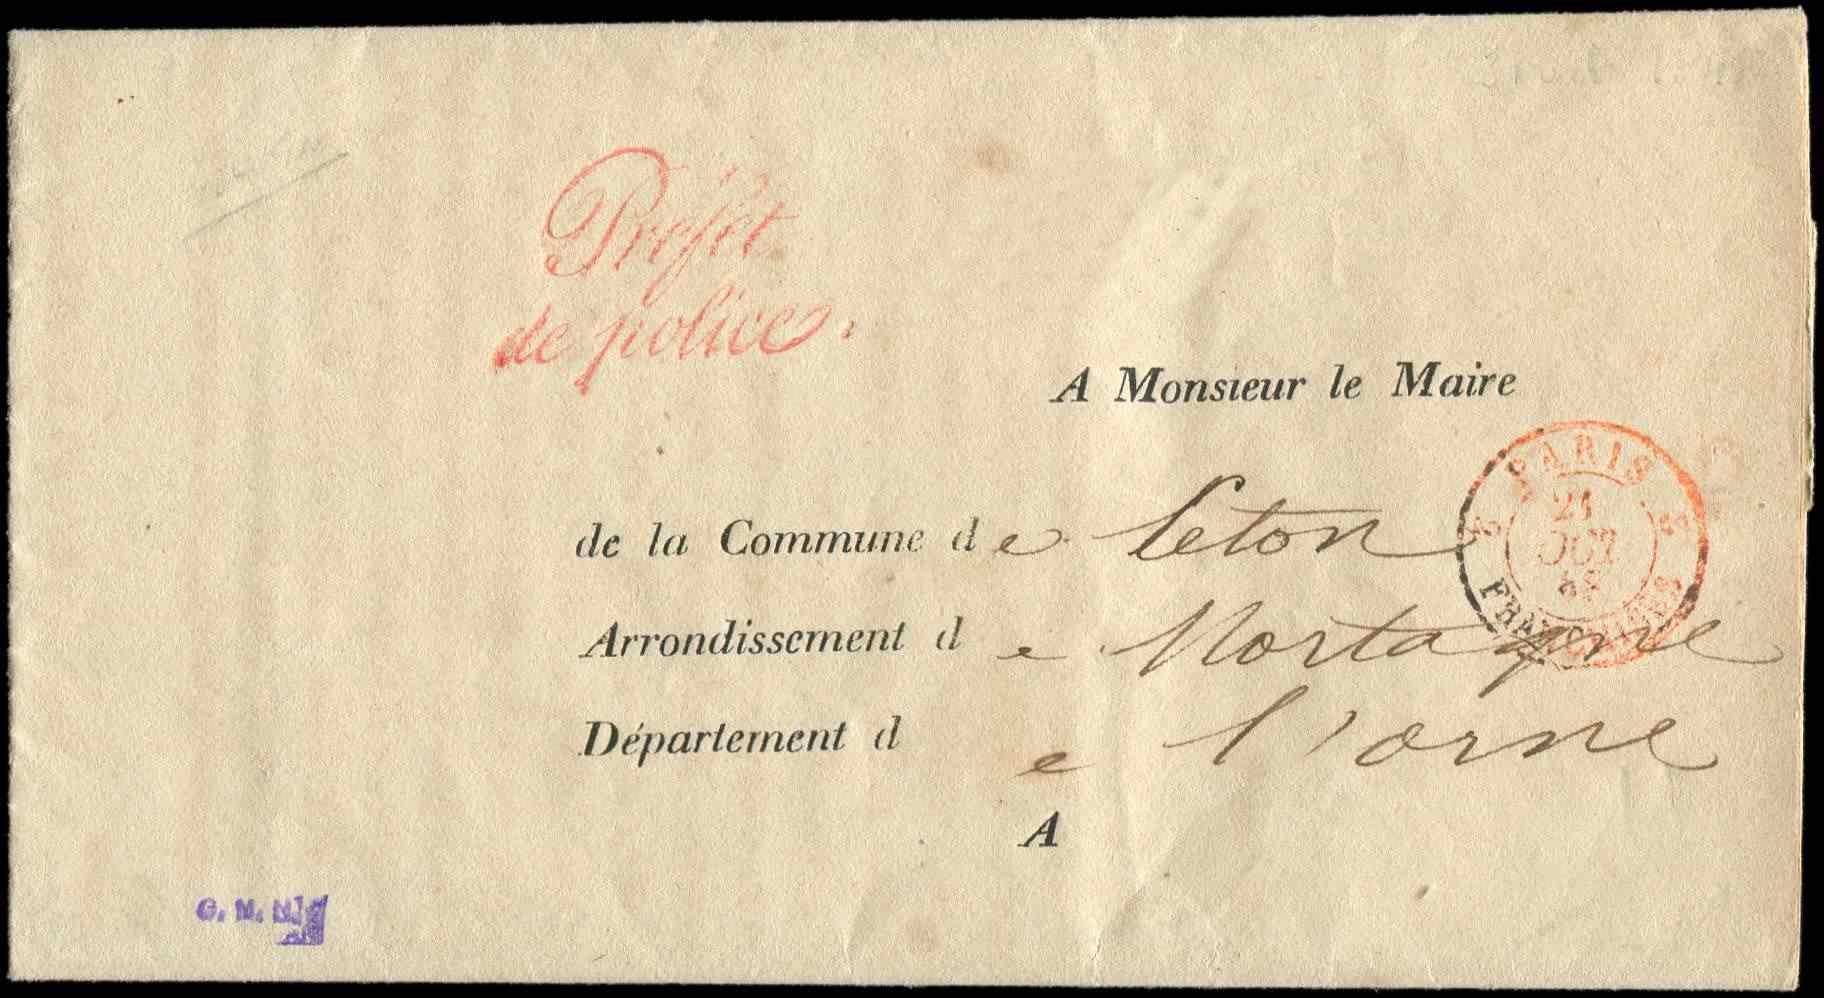 Préfet
de police.
A Monsieur le Maire
de la Commune de Ceton
PARIS
21
OCT
FRANCHISES
Arrondissement de Mortagne
Département de l'orne
A
G. M. M.